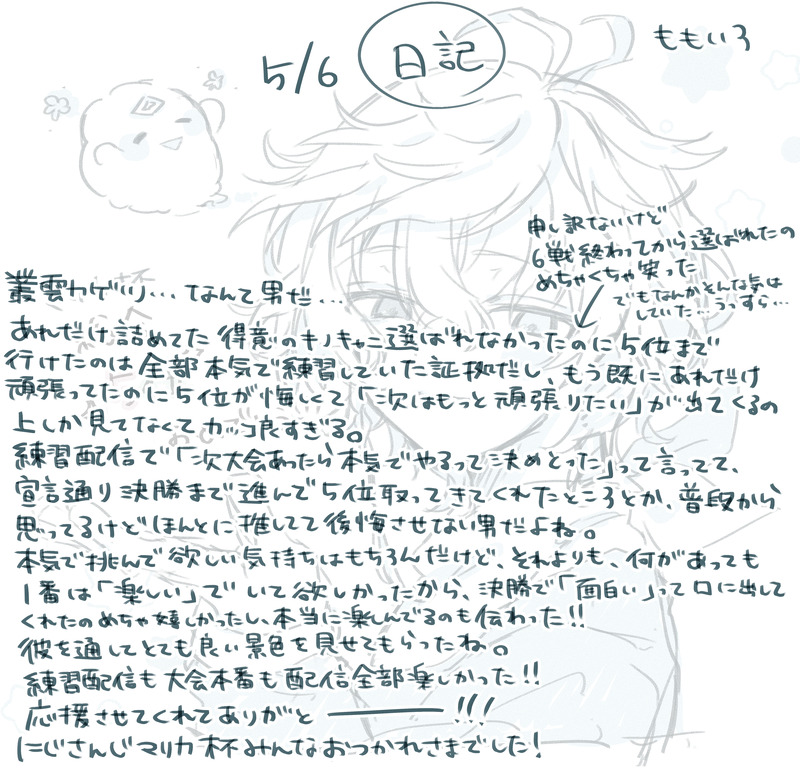 5/6
日記
ももいろ
申し訳ないけど
6戦終わってから選ばれたの
めちゃくちゃ笑った
でもなんかそんな気は
していた…うっすら…
叢雲カゲツ…なんて男だ…
あれだけ詰めてた得意のキノキャニ選ばれなかったのに5位まで
行けたのは全部本気で練習していた証拠だし、もう既にあれだけ
頑張ってたのに5位が悔しくて「次はもっと頑張りたい」が出てくるの
上しか見てなくてカッコ良すぎる。
練習配信で「次大会あったら本気でやるって決めとった」って言ってて、
宣言通り決勝まで進んで5位取ってきてくれたところとか、普段から
思ってるけどほんとに推してて後悔させない男だよね。
本気で挑んで欲しい気持ちはもちろんだけど、それよりも、何があっても
1番は「楽しい」でいて欲しかったから、決勝で「面白い」って口に出して
くれたのめちゃ嬉しかったし、本当に楽しんでるのも伝わった!!
彼を通してとても良い景色を見せてもらったね。
練習配信も大会本番も配信全部楽しかった!!
応援させてくれてありがと――!!!
にじさんじマリカ杯みんなおつかれさまでした!